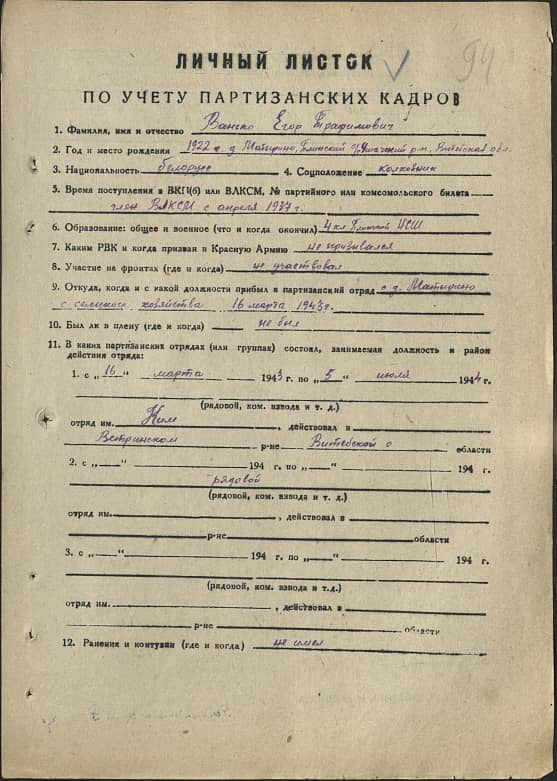 94
ЛИЧНЫЙ ЛИСТОК
ПО УЧЕТУ ПАРТИЗАНСКИХ КАДРОВ
1. Фамилия, имя и отчество Ванько Егор Трафимович
2. Год и место рождения 1922 г. д. Матырино, Ушачский р-н, Витебская обл.
3. Национальность белорус 4. Соцположение колхозник
5. Время поступления в ВКП(б) или ВЛКСМ, № партийного или комсомольского билета
член ВЛКСМ с апреля 1937 г.
6. Образование: общее и военное (что и когда окончил) 4 кл. НСШ
7. Каким РВК и когда призван в Красную Армию не призывался
8. Участие на фронтах (где и когда) не участвовал
9. Откуда, когда и с какой должности прибыл в партизанский отряд с д. Матырино
с сельского хозяйства 16 марта 1943 г.
10. Был ли в плену (где и когда) не был
11. В каких партизанских отрядах (или группах) состоял, занимаемая должность и район
действия отряда:
1. с „16" марта 1943 г. по „5" июля 1944 г.
(рядовой, ком. взвода и т. д.)
отряд им. Ким, действовал в
Ветринском р-не Витебской о области
2. с „ " 194 г. по „ " 194 г.
рядовой
(рядовой, ком. взвода и т. д.)
отряд им. , действовал в
р-не области
3. с „ " 194 г. по „ " 194 г.
(рядовой, ком. взвода и т.д.)
отряд им. , действовал в
р-не области
12. Ранения и контузии (где и когда) не имел